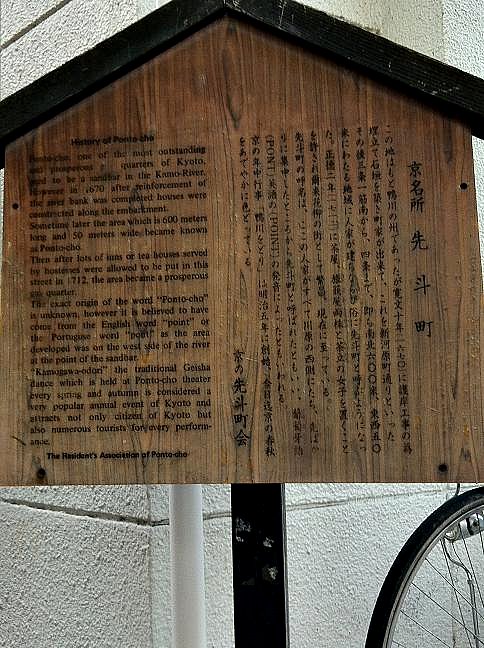 History of Ponto-cho
Ponto-cho, one of the most outstanding
and prosperous quarters of Kyoto,
used to be a sandbar in the Kamo-River.
However in 1670 after reinforcement of
the river bank was completed houses were
constructed along the embankment.
Sometime later the area which is 600 meters
long and 50 meters wide became known
as Ponto-cho.
Then after lots of inns or tea houses served
by hostesses were allowed to be put in this
street in 1712, the area became a prosperous
gay quarter.
The exact origin of the word "Ponto-cho"
is unknown, however it is believed to have
come from the English word "point" or
the Portugese word "pont" as the area
developed was on the west side of the river
at the point of the sandbar.
"Kamogawa-odori" the traditional Geisha
dance which is held at Ponto-cho theater
every spring and autumn is considered a
very popular annual event of Kyoto and
attracts not only citizen of Kyoto but
also numerous tourists for every perform-
ance.
The Resident's Association of Ponto-cho
京名所 先斗町
この地はもと鴨川の州であったが寛文十年(一六七〇)に護岸工事の為
埋立て石垣を築き町家が出来て、これを新河原町通りといった。
その後三条一筋南から、四条まで、即ち南北六〇〇米、東西五〇
米にわたる地域に人家が建ちならび俗に先斗町と呼ぶようになっ
た。正徳二年(一七一二)に茶屋、旅籠屋両株に茶立の女子を置くこと
を許され爾来花柳の街として繁昌し現在に至っている。
先斗町の呼称は、ここの人家がすべて川原の西側にたち、先ばか
りに集中したところから先斗町と呼ばれたともいい、葡萄牙語
(PONT)英語の(POINT)の発音によったともいわれる。
京の年中行事「鴨川をどり」は明治五年に創続、余目迄京の春秋
をあでやかに色どっている。
京の先斗町会